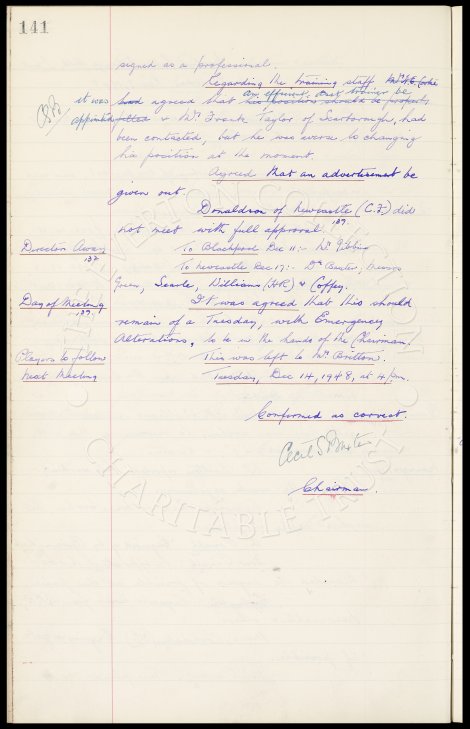 141
signed as a professional.
Regarding the training staff Mr. H.E. Cooke
CSB it was had agreed that his position should be properly an efficient, asst trainer be
appointed & Mr Frank Taylor of Scarborough, had
been contacted, but he was averse to changing
his position at the moment.
Agreed that an advertisement be
given out.
Donaldson of Newcastle (C.F.) did
not meet with full approval. 137.
Director Away To Blackpool Dec 11:- Mr Gibbins
137 To Newcastle Dec 17:- Dr Baxter, Messrs
Green, Searle, Williams (H.R) & Coffey.
Day of Meeting It was agreed that this should
137. remain of a Tuesday, with Emergency
Alterations, to be in the hands of the Chairman.
Players to follow This was left to Mr Britton.
Next Meeting Tuesday, Dec 14, 1948, at 4 pm.
Confirmed as correct.
Cecil S Baxter
Chairman.
EVERTON COLLECTION
CHARITABLE TRUST